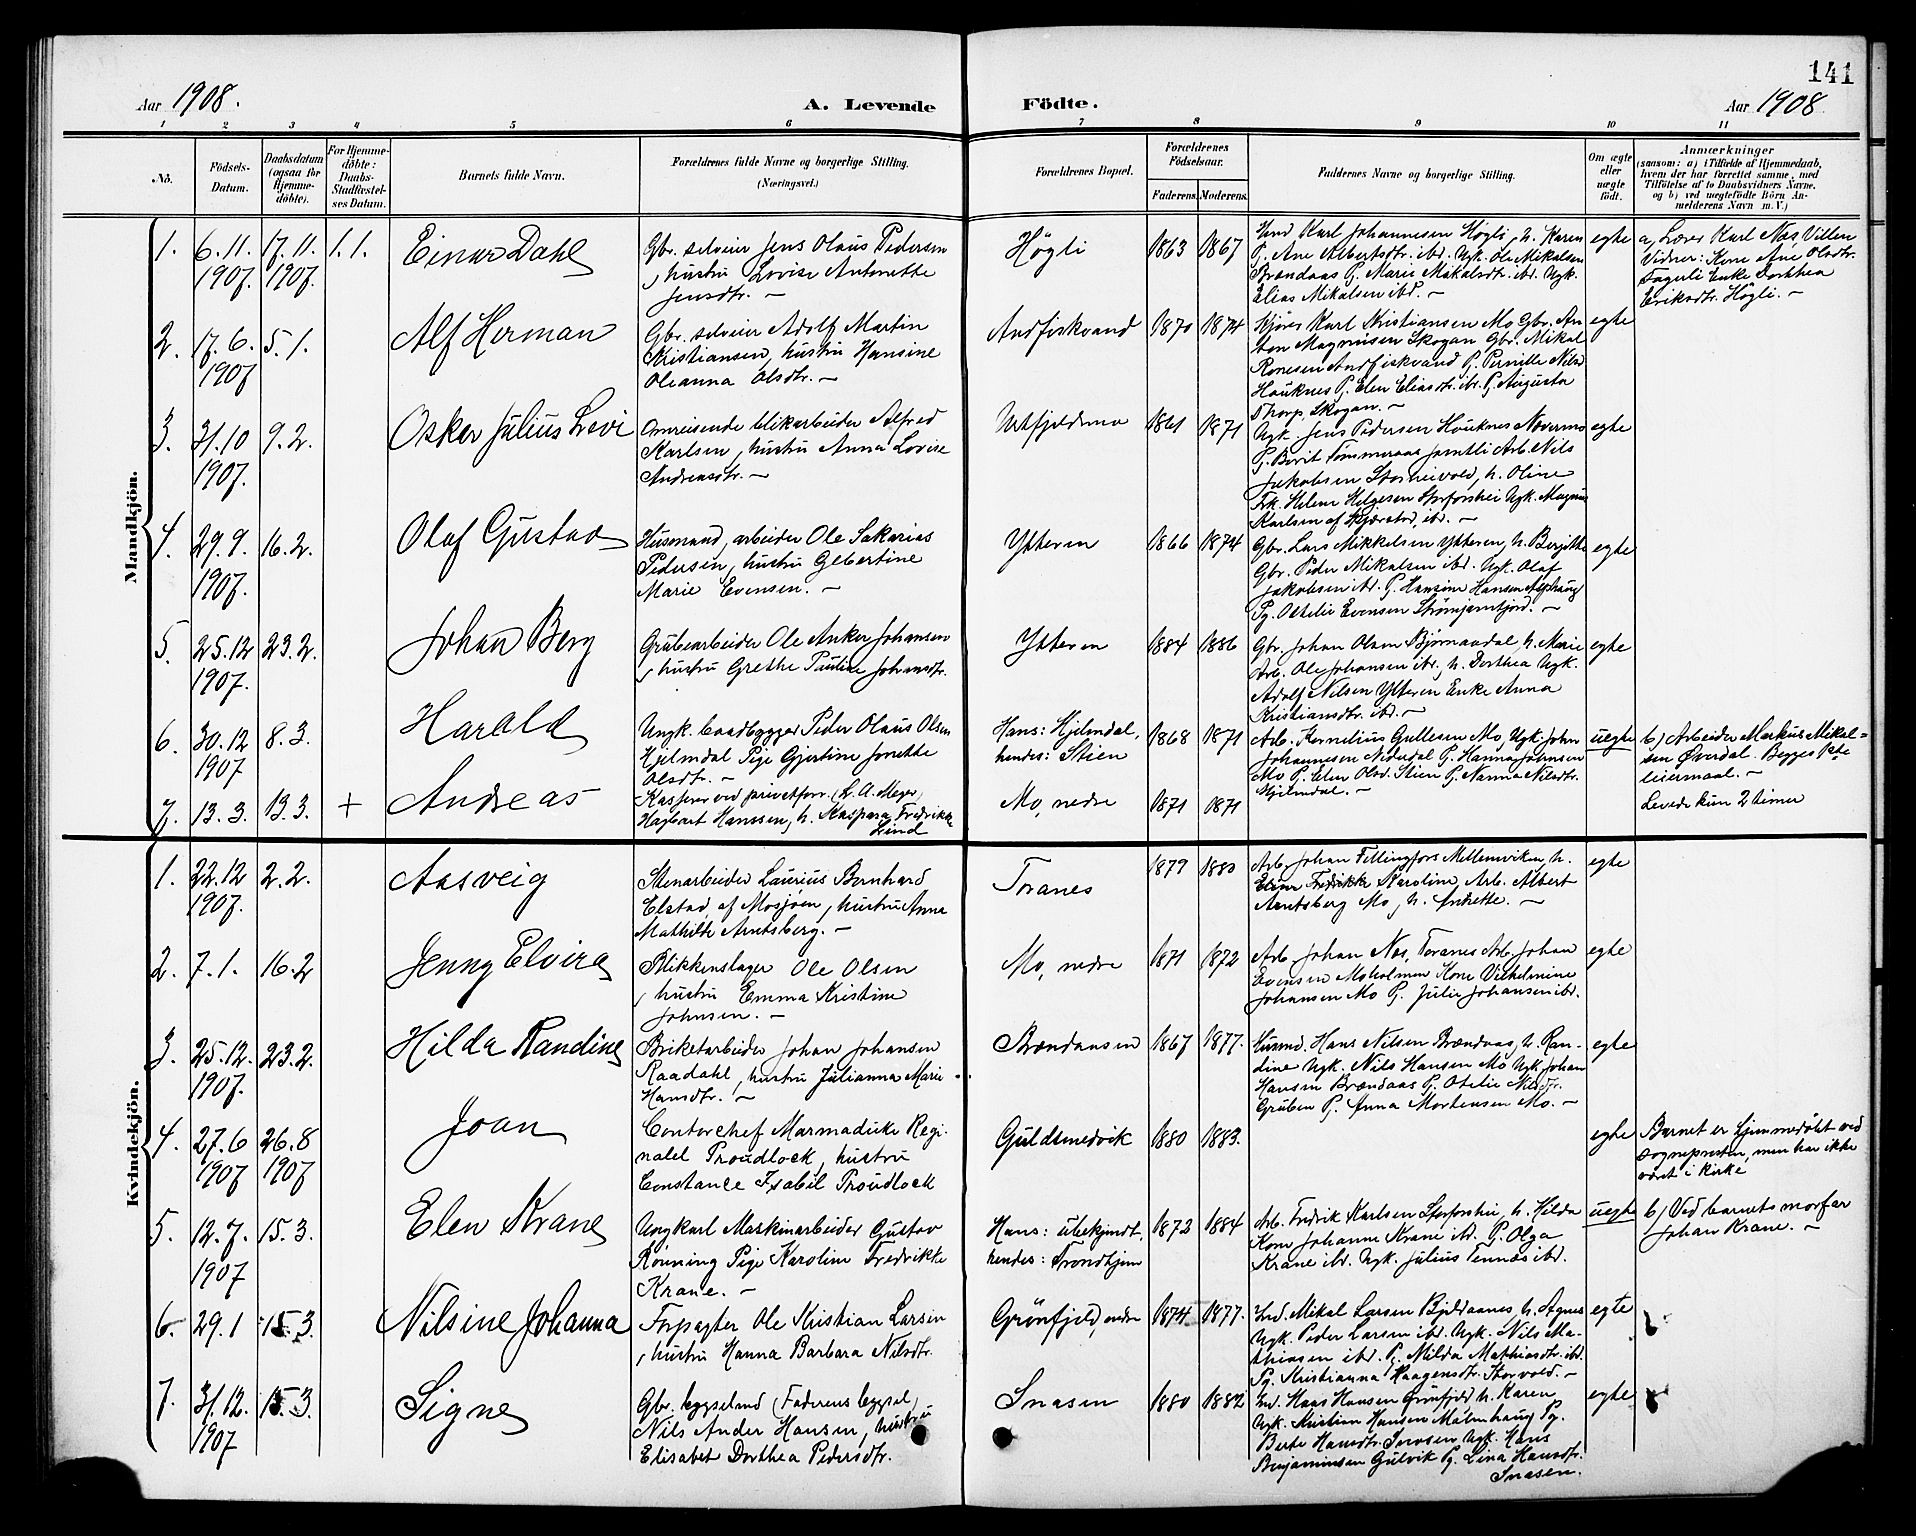 141
Aar 1908.
A. Levende
Födte.
Aar 1908
1 2 3 4 5 6 7 8 9 10 11
No.
Födsels-
Datum.
Daabsdatum
(ogsaa for
Hjemme-
döbte).
For Hjemme-
döbte:
Daabs-
Stadfæstel-
ses Datum.
Barnets fulde Navn.
Forældrenes fulde Navne og borgerlige Stilling.
(Næringsvei.)
Forældrenes Bopæl.
Forældrenes
Födselsaar.
Faderens.
Moderens.
Faddernes Navne og borgerlige Stilling.
Om ægte
eller
uægte
födt.
Anmærkninger
(saasom: a) i Tilfælde af Hjemmedaab,
hvem der har forrettet samme, med
Tilföielse af to Daabsvidners Navne,
og b) ved uegtefödte Börn An-
melderens Navn m. V.)
Mandkjön.
1. 6.11. 1907. 17.11. 1907. 1.1. Einar Dahl
Gbr. selveier Jens Olaus Pedersen
, hustru Lovise Antonette
Jensdtr. —
Högli 1863 1867
Ind Karl Johannesen Högli, h. Karen
P. Ane Albertsdtr. ibd. Ugk. Ole Mikalsen
Brændaas P. Marie Mikalsdtr. ibd. Ugk.
Elias Mikalsen ibd. —
egte
a, Lærer Karl Nos Villen
Vidner: Kone Ane Olsdtr.
Fagerli Enke Dorthea
Eriksdtr. Högli. —
2. 17.6. 1907 5.1. Alf Herman
Gbr. selveier Adolf Martin
Kristiansen, hustru Hansine
Oleanna Olsdtr. —
Andfiskvand 1870 1874
Karl Kristiansen Mo Gbr. An
ton Magnusen Skogan Gbr. Mikal
Andfiskvand P. Pernille Nilsd
Houknes P. Elen Eliasdtr. ibd. P. Augusta
Thorp, Skogan. —
egte
3. 31.10 1907. 9.2. Oskar Julius Levi
Omreisende blikarbeider Alfred
Karlsen, hustru Anna Lovise
Andreasdtr. —
Urtfjeldmo 1861 1871
Ugk. Jens Pedersen Houknes
P. Berit Tommeraas Jamtli Arb. Nils
Jakobsen Storheivold, h. Oline
Frk. Helene Helgesen Storforshei Ugk. Magnus
Karlsen af Skjerstad, ibd. —
egte
4. 29.9. 1907. 16.2. Olaf Gustad
Husmand, arbeider Ole Sakarias
Pedersen, hustru Gelbertine
Marie Evensen. —
Ytteren 1866 1874
Gbr. Lars Mikkelsen Ytteren, h. Bergitte
Gbr. Peder Mikalsen ibd. Ugk. Olaf
Jakobsen ibd. P. Hansine Hansen
Pg. Othelie Evensen —
egte
5. 25.12 1907. 23.2. Johan Berg
Grubearbeider Ole Anker Johansen
, hustru Grethe Pauline Johansdtr.
Ytteren 1884 1886
Gbr. Johan Olsen Bjørnaadal, h. Marie
Arb. Ole Johansen ibd, h. Dorthea Ugk.
Adolf Nilsen Ytteren Enke Anna
Kristiansdtr. ibd. —
egte
6. 30.12 1907 8.3. Harald
Ungk. baadbygger Peder Olaus Olsen
Hjelmdal Pige Gjertine Jonette
Olsdtr. —
Hans: Hjelmdal,
hendes: Stien
1868 1871
Arb. Kornelius Gullesen Mo, Ugk. John
Johannesen Nederdal P. Hanna Johnsen
Mo P. Elen Olsd. Stien P. Nanna Nilsdtr.
Hjelmdal. —
uegte
b) Arbeider Markus Mikal-
sen Øverdal. Begges 1ste
leiermaal. —
7. 13.3. 13.3. + Andreas
Kasserer ved privatforr. (L. A. Meyer)
Hagbart Hanssen, h. Kaspara Fredrikke
Lind
Mo, nedre 1871 1871
Levede kun 2 timer
Kvindekjön.
1. 22.12 1907. 2.2. Aasveig
Stenarbeider Laurius Bernhard
Elstad, af Mosjøen, hustru Anna
Mathilde Arntsberg. —
Toranes 1879 1880
Arb. Johan Fellingfors Mellemviken, h.
Karoline, Arb. Albert
Arntsberg Mo, h. —
egte
2. 7.1. 16.2 Jenny Elvira
Blikkenslager Ole Olsen
, hustru Emma Kristine
Johnsen. —
Mo, nedre 1871 1872
Arb. Johan Nes, Toranes Arb. Johan
Evensen Moholmen Kone Vilhelmine
Johansen Mo Pg. Julie Johansen ibd.
egte
3. 25.12. 1907. 23.2. Hilda Randine
Briketarbeider Johan Johansen
Raadahl, hustru Julianna Marie
Hansdtr. —
Brændaasen 1867 1877.
Husmd. Hans Nilsen Brændaas, h. Ran-
dine Ugk. Nils Hansen Mo Ugk Johan
Hansen Brændaas P. Otelie Nilsdtr.
Gruben P. Anna Mortensen Mo. —
egte
4. 27.6 1907 26.8 1907 Joan
Contorchef Marmaduke Regi-
nald Proudlock, hustru
Constance Isabil Proudlock
Guldsmedvik 1880 1883.
egte
Barnet er hjemmedøbt ved
sognepresten, men har ikke
været i kirke
5. 12.7. 1907 15.3. Elen Krane
Ungkarl Maskinarbeider Gustav
Rønning Pige Karoline Fredrikke
Krane. —
Hans: ubekjendt,
hendes: Trondhjem
1872 1884
Arb. Fredrik Karlsen Storforshei, h. Hilda
Kone Johanne Krane ibd. P. Olga
Krane ibd. Ugk. Julius Tennæs ibd.
uegte
b) Ved barnets morfar
Johan Krane. —
6. 29.1 15.3 Nilsine Johanna
Forpagter Ole Kristian Larsen
, hustru Hanna Barbara Nilsdtr.
Grönfjeld, nedre 1874 1877.
Ind. Mikal Larsen Bjeldaanes, h. Agnes
Ugk. Peder Larsen ibd. Ugk. Nils Ma-
thiasen ibd. P. Milda Mathiasdtr. ibd.
Pg. Kristianna Haagensdtr. Storvold. —
egte
7. 31.12. 1907 15.3. Signe
Gbr. bygselmd (Faderens bygsel)
Nils Ander Hansen, hustru
Elisabet Dorthea Pedersdtr.
Snasen 1880 1882
Ind. Hans Hansen Grönfjeld h. Karen
Ugk. Kristian Hansen Malmhaug Pg.
Berte Hansdtr. Snasen Ugk. Hans
Benjaminsen Gulvik Pg. Lina Hansdtr.
Snasen.
egte